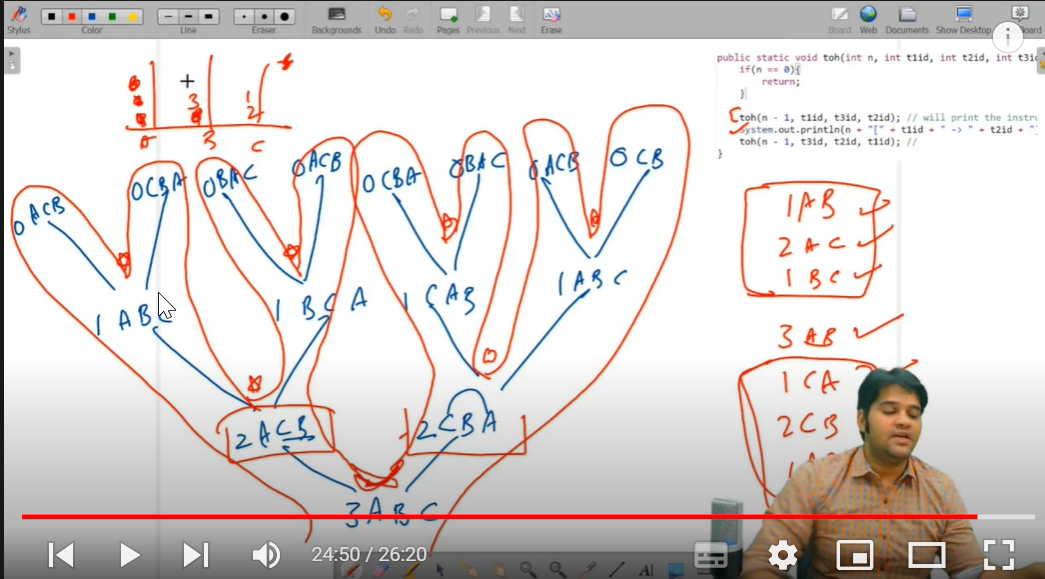 Stylus
Color
Line
Eraser
Backgrounds
Undo
Redo
Pages
Previous
Next
Erase
Board
Web
Documents
Show Desktop
Board
i
public static void toh(int n, int t1id, int t2id, int t3id
if(n == 0){
return;
}
toh(n - 1, t1id, t3id, t2id); // will print the instru
System.out.println(n + "[" + t1id + " -> " + t2id + "]
toh(n - 1, t3id, t2id, t1id); //
}
3
1
2
A
B
C
0 ACB
0CBA
0BAC
0ACB
0CBA
0BAC
0ACB
0 CB
1 ABC
1 BCA
1 CAB
1 ABC
2 ACB
2 CBA
3 ABC
1 AB
2 AC
1 BC
3 AB
1 CA
2 CB
24:50 / 26:20
AI